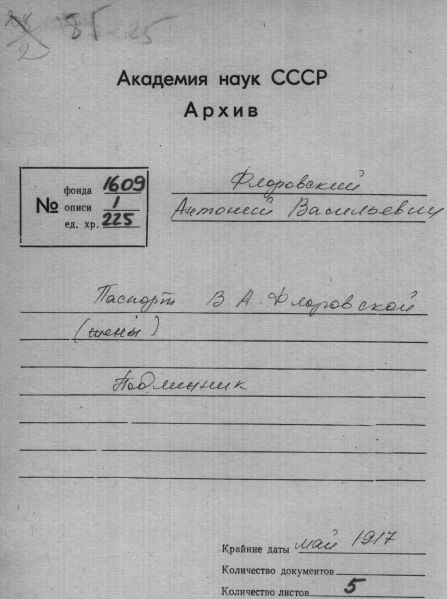 85-25
Академия наук СССР
Архив
№
фонда 1609
описи 1
ед. хр. 225
Флоровский
Антоний Васильевич
Паспорт В. А. Флоровской
(жены)
Подлинник
Крайние даты май 1917
Количество документов
Количество листов 5